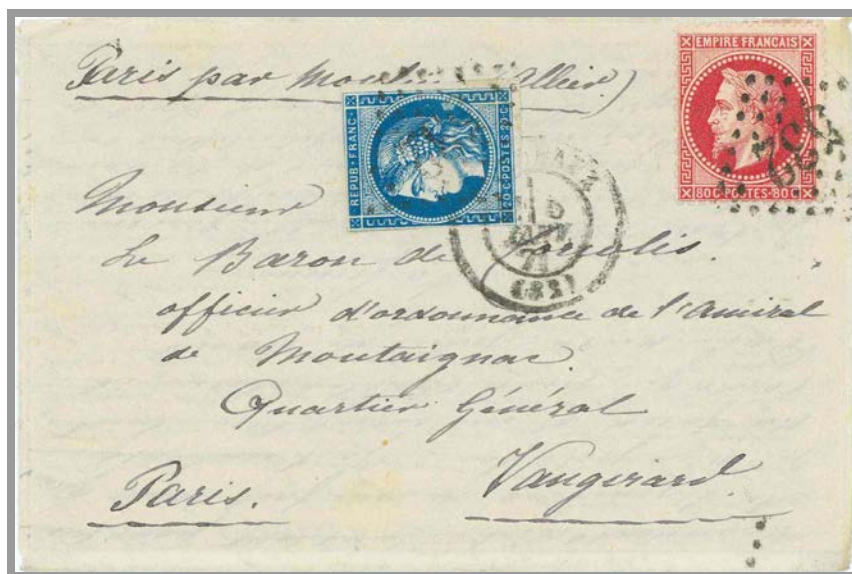 Paris par Allier)
EMPIRE FRANCAIS
80 C POSTES 80 C
532
REPUB. FRANC.
20 C. POSTES 20 C.
5
JANV
71
(32)
Monsieur
Le Baron de
officier d'ordonnance de l'Amiral
de Montaignac.
Quartier Général
Vaugirard.
Paris.